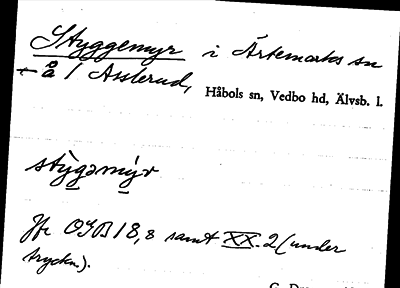 Styggemyr i Ärtemarks sn
å 1 Asslerud,
Håbols sn, Vedbo hd, Älvsb. l.
stỳgəmýr
Jfr OGB 18,8 samt XX.2 (under
tryckn.).